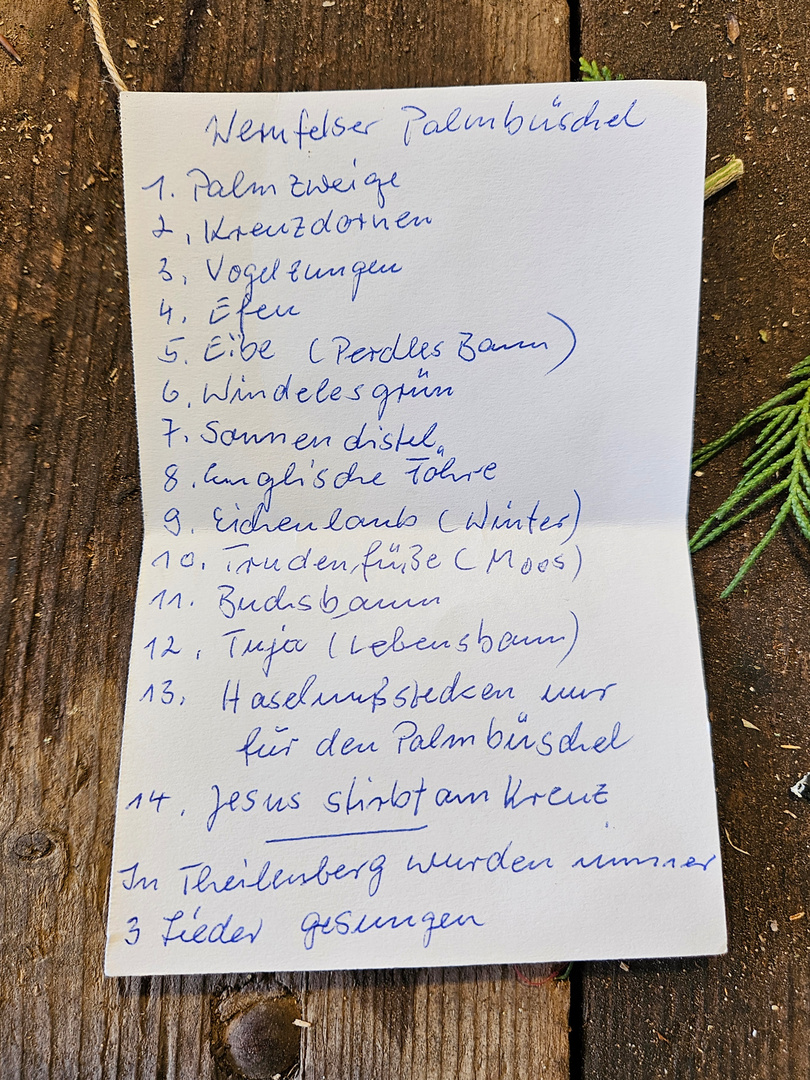 Wernfelser Palmbüschel
1. Palmzweige
2. Kreuzdornen
3. Vogelzungen
4. Efeu
5. Eibe (Perdles Baum)
6. Windelesgrün
7. Sonnendistel
8. Englische Föhre
9. Eichenlaub (Winter)
10. Trudenfüße (Moos)
11. Buchsbaum
12. Tuja (Lebensbaum)
13. Haselnußstecken nur
für den Palmbüschel
14. Jesus stirbt am Kreuz
In Theilenberg wurden immer
3 Lieder gesungen